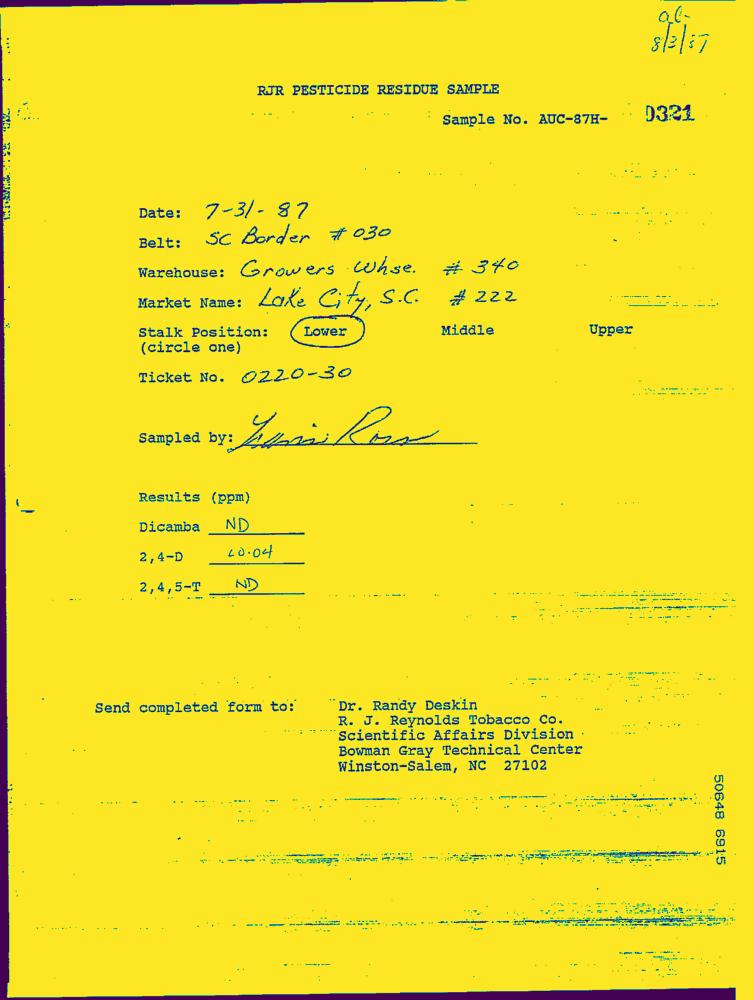 8/3/87
RJR PESTICIDE RESIDUE SAMPLE
Sample No. AUC-87H- 0321
Date: 7-31-87
Belt: SC Border # 030
Warehouse: Growers Whse. # 340
Market Name: Lake City, S.C. # 222
Stalk Position: Lower Middle Upper
(circle one)
Ticket No. 0220-30
Sampled by: Ross
Results (ppm)
Dicamba ND
2,4-D <0.04
2,4,5-T ND
Send completed form to: Dr. Randy Deskin
R. J. Reynolds Tobacco Co.
Scientific Affairs Division
Bowman Gray Technical Center
Winston-Salem, NC 27102
50648 6915